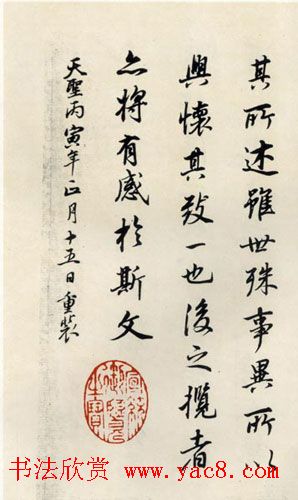 其所述雖世殊事異所以
興懷其致一也後之攬者
亦將有感於斯文
天聖丙寅年正月十五日重裝
宣統
御覽
之寶
书法欣赏 www.yac8.com